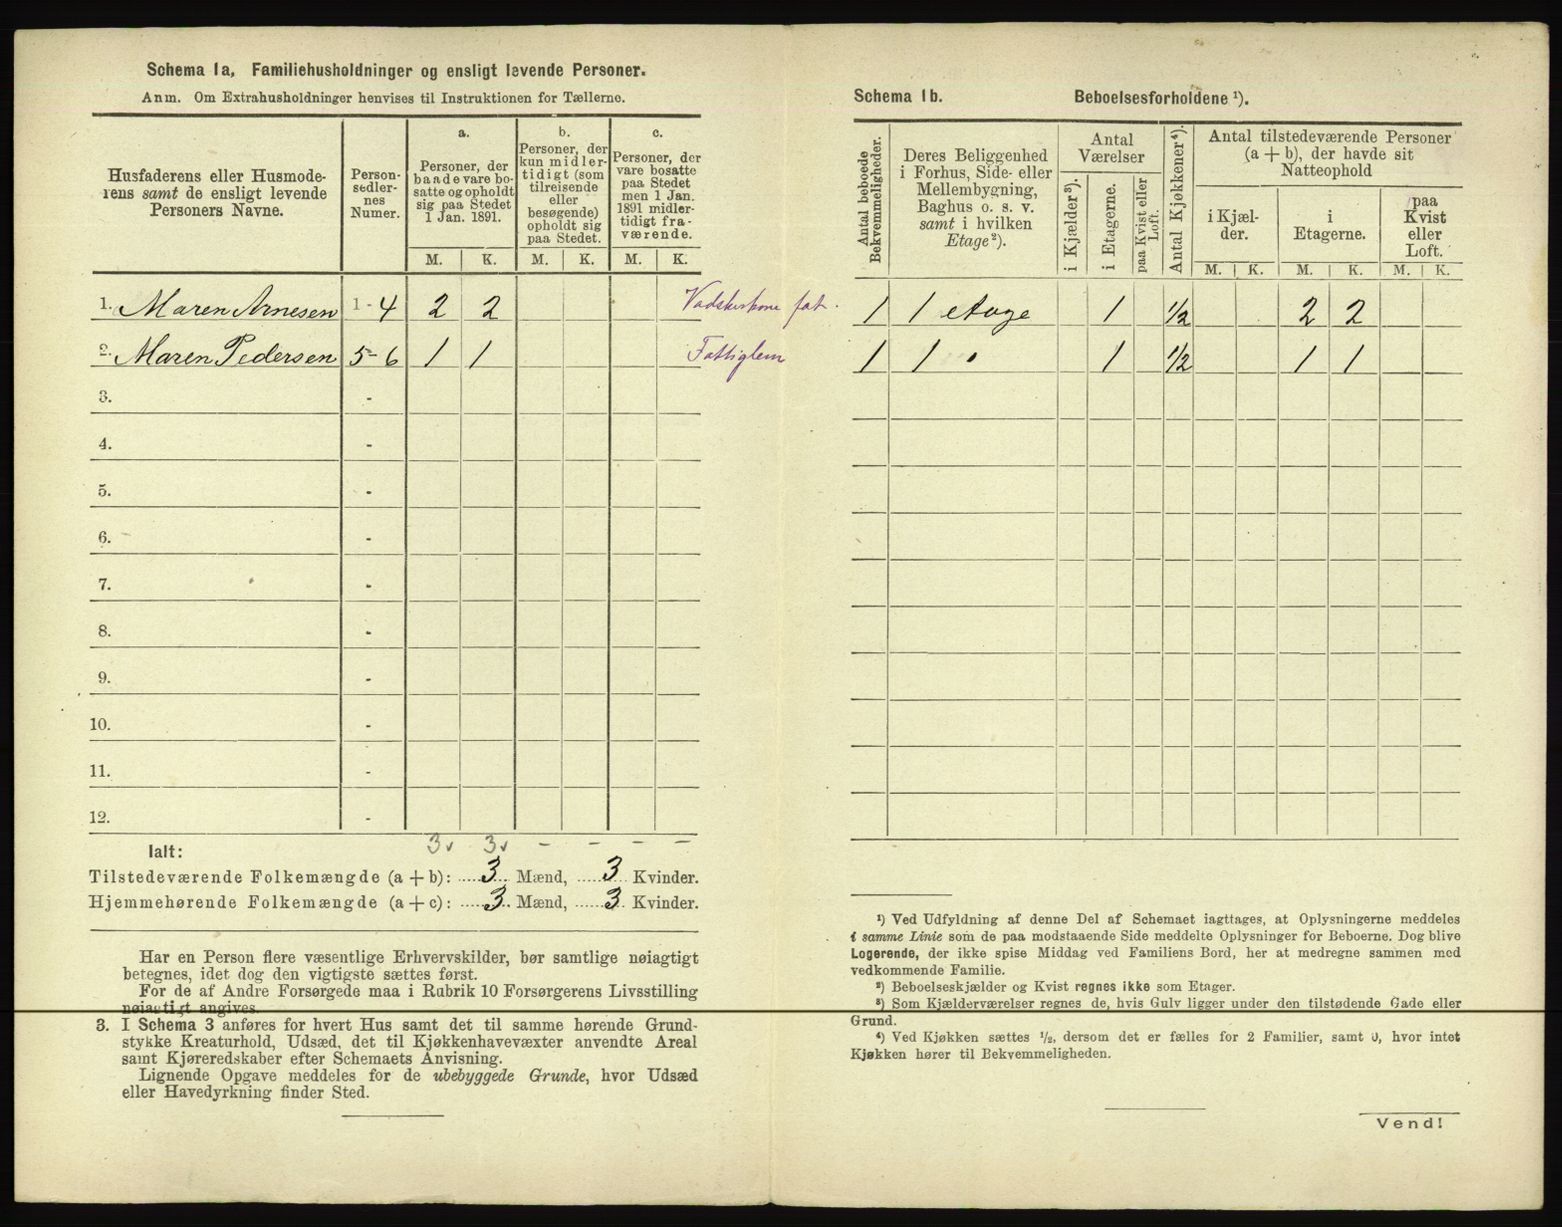 Schema 1a, Familiehusholdninger og ensligt levende Personer.
Anm. Om Extrahusholdninger henvises til Instruktionen for Tællerne.
Husfaderens eller Husmoderens samt de ensligt levende Personers Navne.
Personsedlernes Numer.
a.
Personer, der baade vare bosatte og opholdt sig paa Stedet 1 Jan. 1891.
b.
Personer, der kun midlertidigt (som tilreisende eller besøgende) opholdt sig paa Stedet.
c.
Personer, der vare bosatte paa Stedet men 1 Jan. 1891 midlertidigt fraværende.
M. K. M. K. M. K.
1. Maren Arnesen 1-4 2 2
2. Maren Pedersen 5-6 1 1 Fattiglem
3. -
4. -
5. -
6. -
7. -
8. -
9. -
10. -
11. -
12. -
Ialt: 3 3 - - - -
Tilstedeværende Folkemængde (a + b): 3 Mænd, 3 Kvinder.
Hjemmehørende Folkemængde (a + c): 3 Mænd, 3 Kvinder.
Har en Person flere væsentlige Erhvervskilder, bør samtlige nøiagtigt
betegnes, idet dog den vigtigste sættes først.
For de af Andre Forsørgede maa i Rubrik 10 Forsørgerens Livsstilling
nøiagtigt angives.
3. I Schema 3 anføres for hvert Hus samt det til samme hørende Grund-
stykke Kreaturhold, Udsæd, det til Kjøkkenhavevæxter anvendte Areal
samt Kjøreredskaber efter Schemaets Anvisning.
Lignende Opgave meddeles for de ubebyggede Grunde, hvor Udsæd
eller Havedyrkning finder Sted.
Schema 1b. Beboelsesforholdene ¹).
Antal beboede Bekvemmeligheder.
Deres Beliggenhed i Forhus, Side- eller Mellembygning, Baghus o. s. v. samt i hvilken Etage ²).
Antal Værelser
i Kjælder ³).
i Etagerne.
paa Kvist eller Loft.
Antal Kjøkkener ⁴).
Antal tilstedeværende Personer (a + b), der havde sit Natteophold
i Kjælder.
i Etagerne.
paa Kvist eller Loft.
M. K. M. K. M. K.
1 1 etage 1 ½ 2 2
1 1 " 1 ½ 1 1
¹) Ved Udfyldning af denne Del af Schemaet iagttages, at Oplysningerne meddeles
i samme Linie som de paa modstaaende Side meddelte Oplysninger for Beboerne. Dog blive
Logerende, der ikke spise Middag ved Familiens Bord, her at medregne sammen med
vedkommende Familie.
²) Beboelseskjælder og Kvist regnes ikke som Etager.
³) Som Kjælderværelser regnes de, hvis Gulv ligger under den tilstødende Gade eller
Grund.
⁴) Ved Kjøkken sættes ½, dersom det er fælles for 2 Familier, samt 0, hvor intet
Kjøkken hører til Bekvemmeligheden.
Vend!